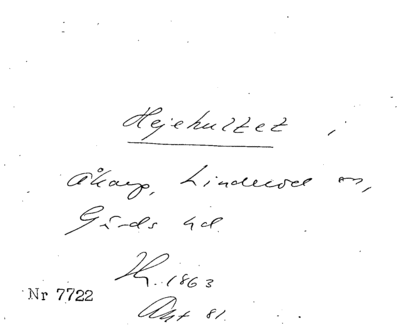 Hejehultet,
Åkarp, Linderöd sn,
Gärds hd.
1863
Nr 7722
81.